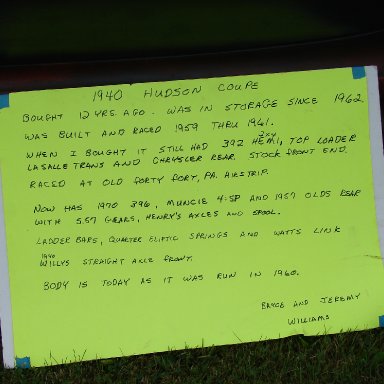 1940 HUDSON COUPE
BOUGHT 12 YRS. AGO. WAS IN STORAGE SINCE 1962.
WAS BUILT AND RACED 1959 THRU 1961.
WHEN I BOUGHT IT STILL HAD 392 HEMI, 2x4 TOP LOADER
LASALLE TRANS AND CHRYSLER REAR STOCK FRONT END.
RACED AT OLD FORTY FORT, PA. AIRSTRIP.
NOW HAS 1970 396, MUNCIE 4-SP AND 1957 OLDS REAR
WITH 5.57 GEARS, HENRY'S AXLES AND SPOOL.
LADDER BARS, QUARTER ELIPTIC SPRINGS AND WATTS LINK
1940 WILLYS STRAIGHT AXLE FRONT.
BODY IS TODAY AS IT WAS RUN IN 1960.
BRYCE AND JEREMY
WILLIAMS